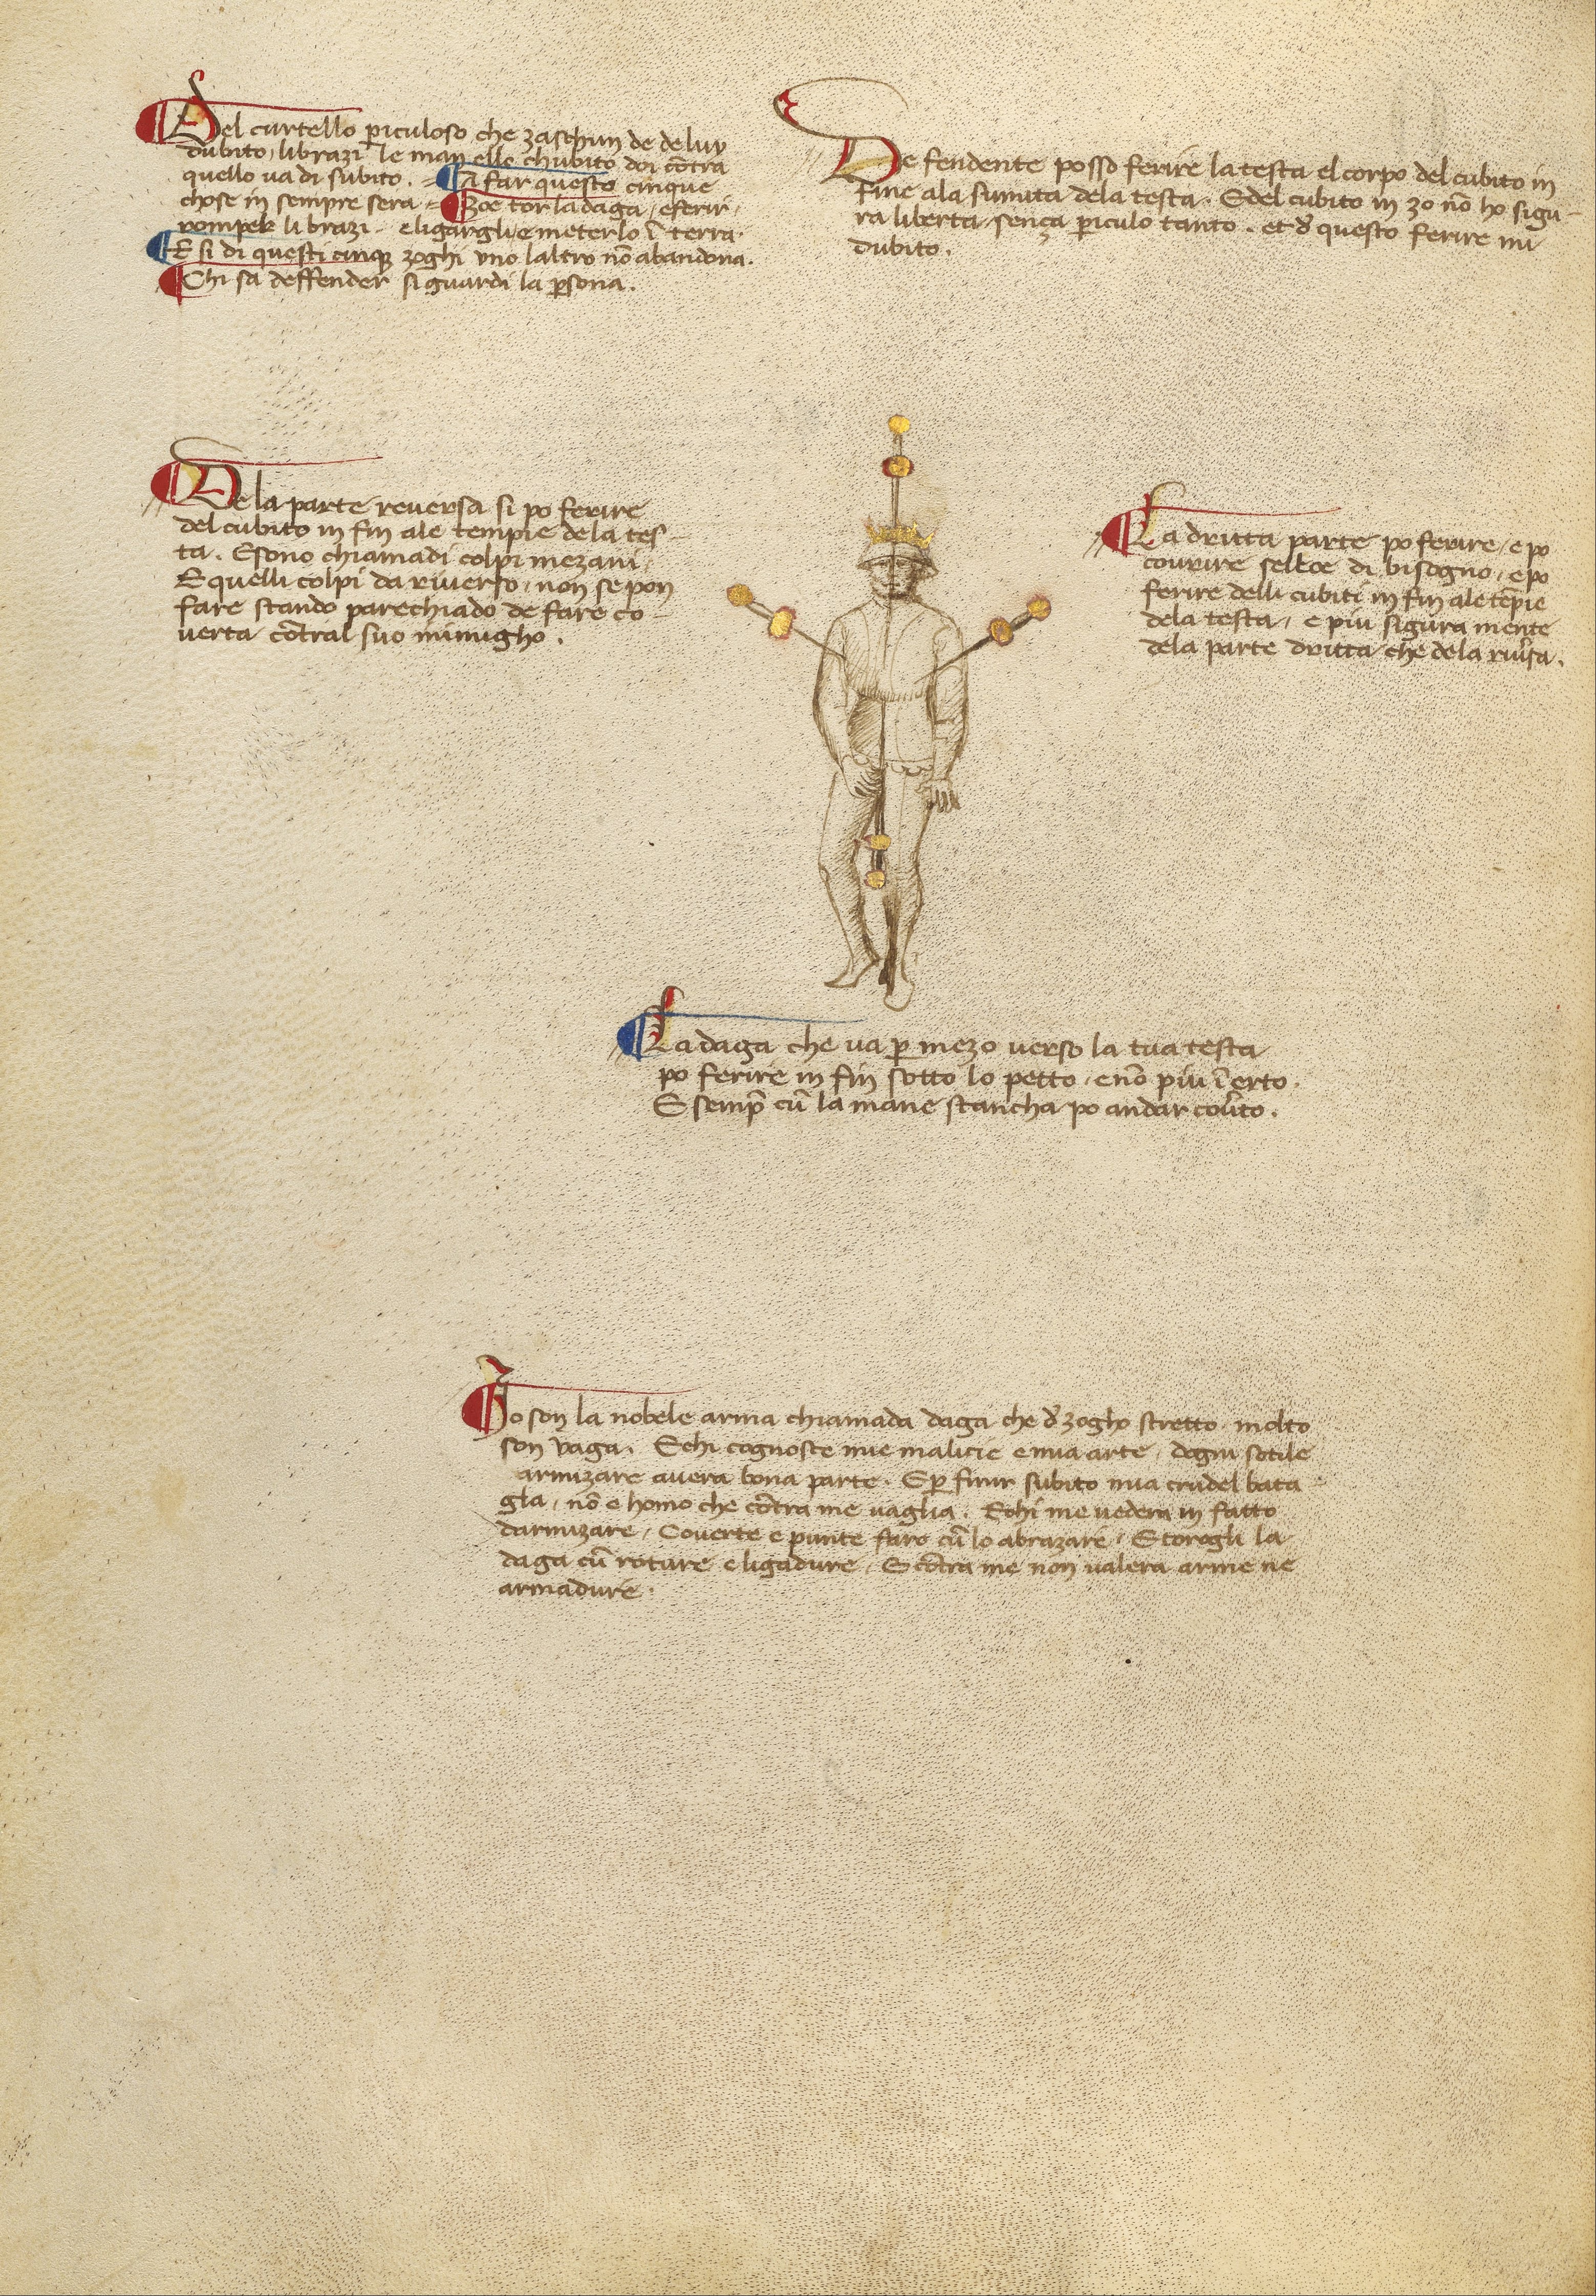 Del curtello p̱iculoso che zaschun de de luy
dubito, li brazi le man ello chubito doi cōtra
quello va di subito. A far questo cinque
chose in sempre sera Zoe tor la daga, e ferir,
romper li brazi e ligargli, e meterlo ī terra.
E si di questi cinque zoghi uno laltro nō abandona.
Chi sa deffender si guardi la p̱sona.
De fendente posso ferire la testa el corpo del cubito in
fine ala sumita dela testa. E del cubito in zo nō ho sigu-
ra liberta sença p̱iculo tanto. et d̄ questo ferire mi
dubito.
De la parte reversa si po ferire
del cubito in fin ale tempie de la tes-
ta. E sono chiamadi colpi mezani,
E quelli colpi da riverso, non se pon
fare stando parechiado de fare co-
verta cōtral suo inimigho.
La dritta parte po ferire, e po
covrire sel ece di bisogno, e po
ferire delli cubiti in fin ale tēpie
dela testa, e piu sigura mente
dela parte dritta che dela riṽsa.
La daga che va p̱ mezo verso la tua testa
po ferire in fin sotto lo petto, e nō piu ī erto.
E semp̄ cū la mane stancha po andar coṽto.
Io son la nobele arma chiamada daga che d̄ zogho stretto molto
son vaga. E chi cognosce mie malicie e mia arte, dogni sotile
armizare avera bona parte. E p̱ finir subito mia crudel bata-
gla, nō e homo che cōtra me vaglia. E chi me vedera in fatto
darmizare, Coverte e punte faro cū lo abrazare, E torogli la
daga cū roture e ligadure, E cōtra me non valera arme ne
armadure.